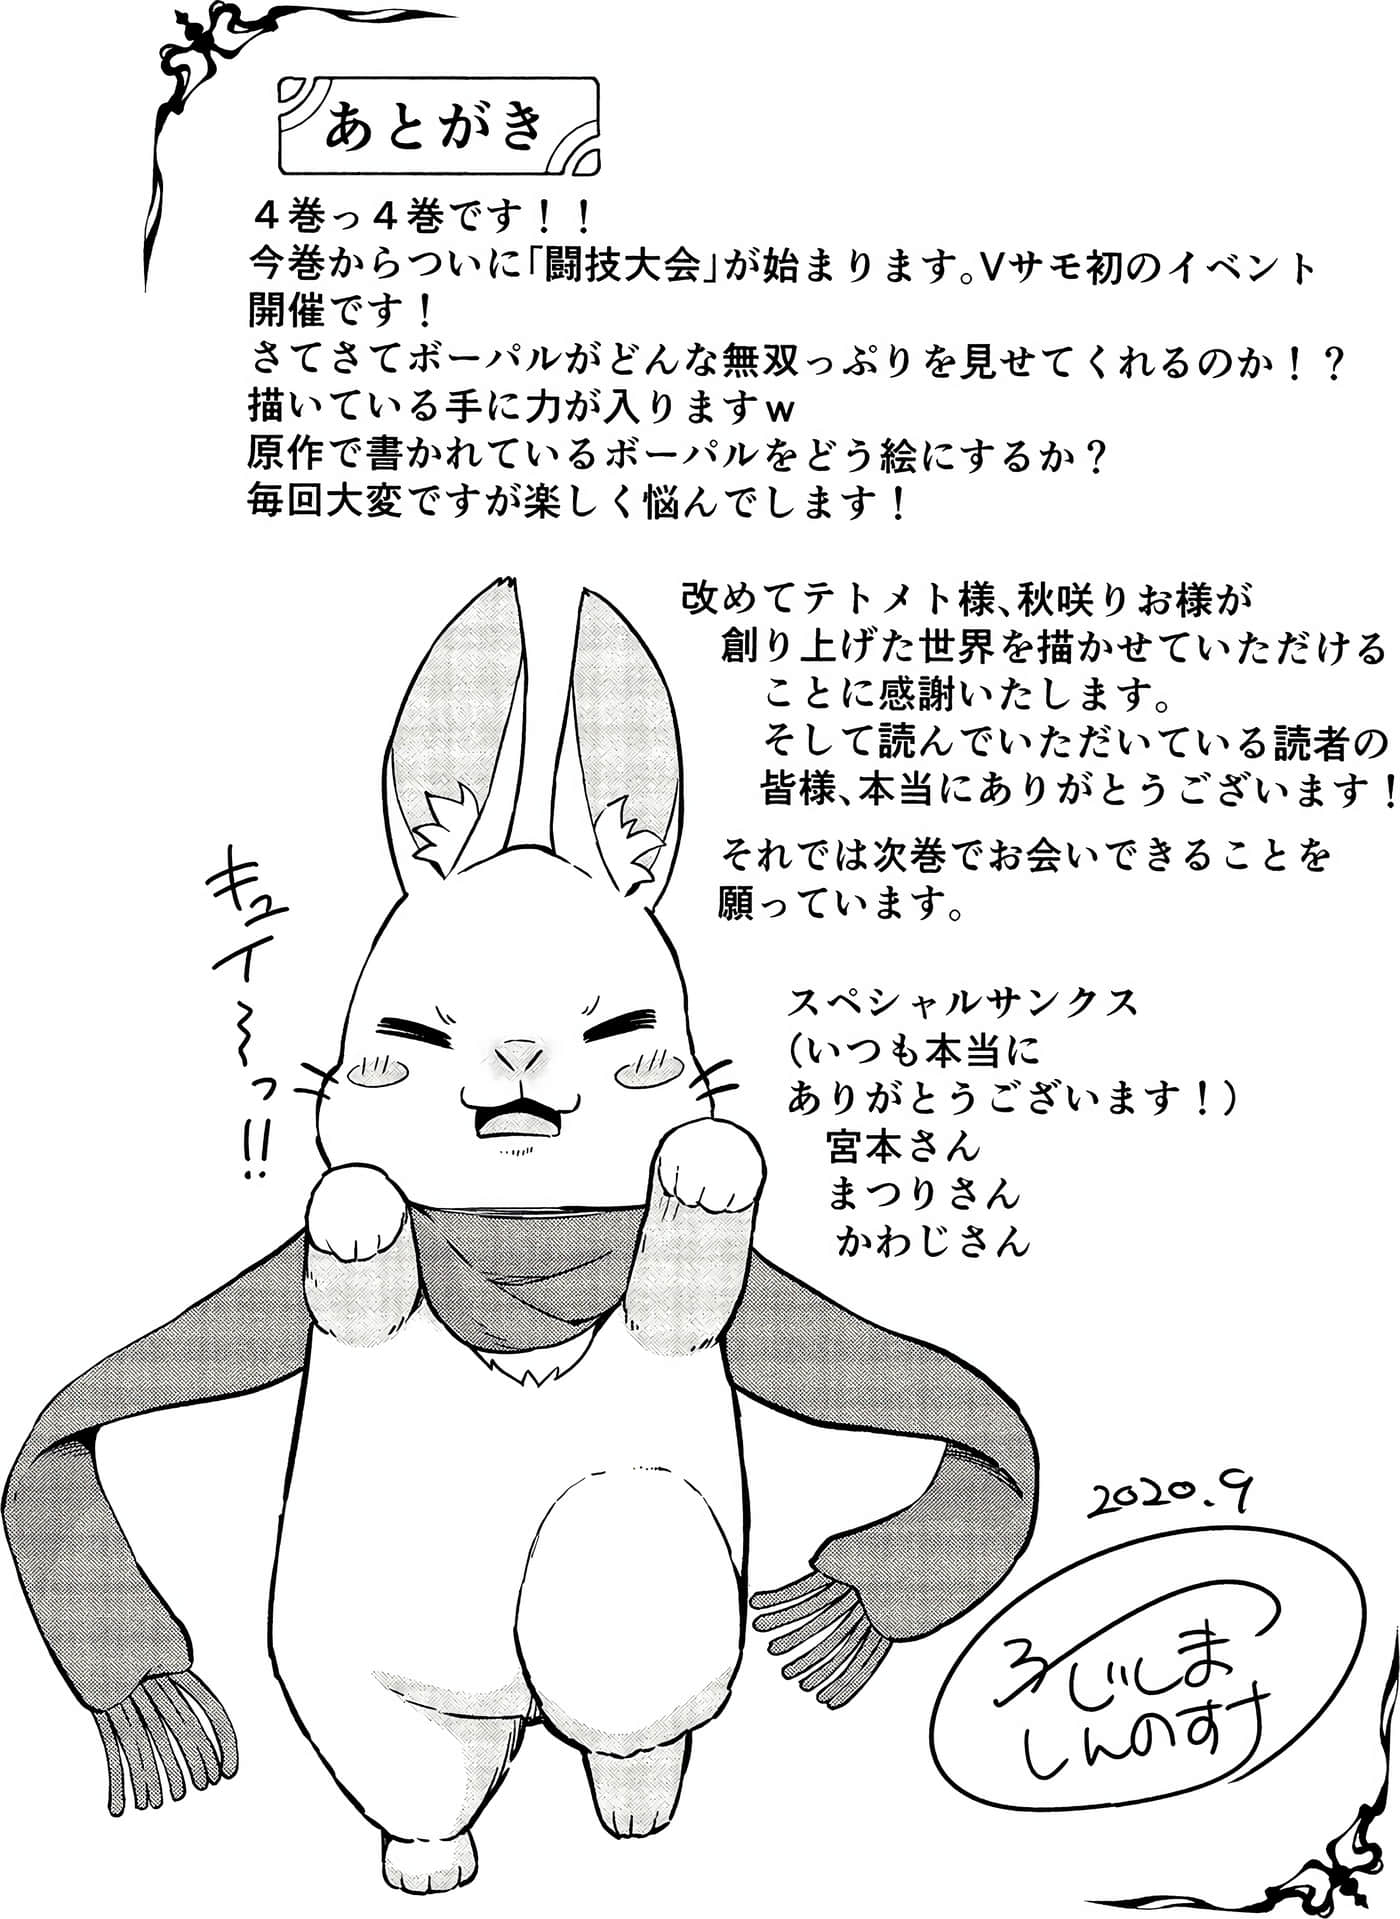 あとがき
４巻っ４巻です！！
今巻からついに「闘技大会」が始まります。Vサモ初のイベント
開催です！
さてさてボーパルがどんな無双っぷりを見せてくれるのか！？
描いている手に力が入りますｗ
原作で書かれているボーパルをどう絵にするか？
毎回大変ですが楽しく悩んでします！
改めてテトメト様、秋咲りお様が
創り上げた世界を描かせていただける
ことに感謝いたします。
そして読んでいただいている読者の
皆様、本当にありがとうございます！
それでは次巻でお会いできることを
願っています。
キュイ〜っ!!
スペシャルサンクス
（いつも本当に
ありがとうございます！）
宮本さん
まつりさん
かわじさん
2020.9
ふじしま
しんのすけ